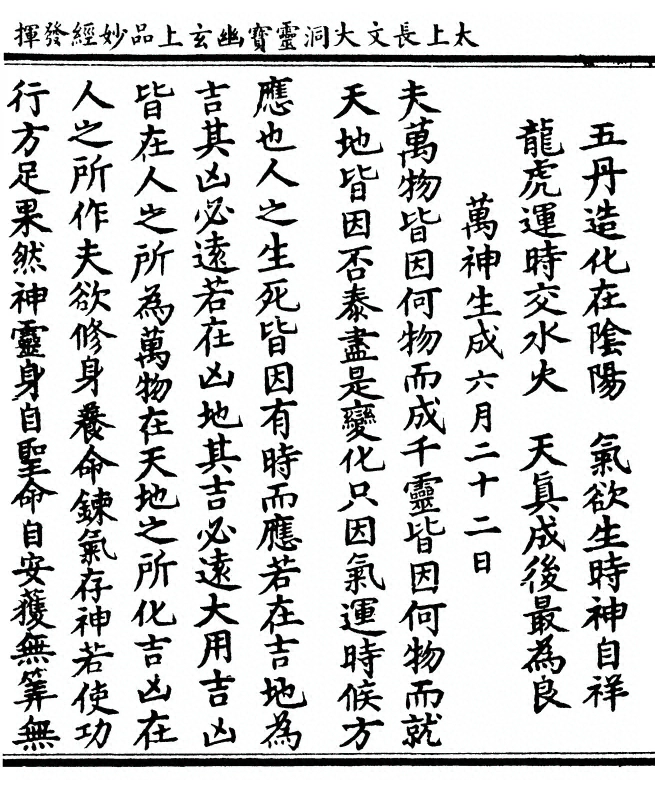 太上長文大洞靈寶幽玄上品妙經發揮
五丹造化在陰陽　氣欲生時神自祥
龍虎運時交水火　天眞成後最為良
萬神生成六月二十二日
夫萬物皆因何物而成千靈皆因何物而就
天地皆因否泰盡是變化只因氣運時候方
應也人之生死皆因有時而應若在吉地為
吉其凶必遠若在凶地其吉必遠大用吉凶
皆在人之所為萬物在天地之所化吉凶在
人之所作夫欲修身養命鍊氣存神若使功
行方足果然神靈身自聖命自安獲無筭無